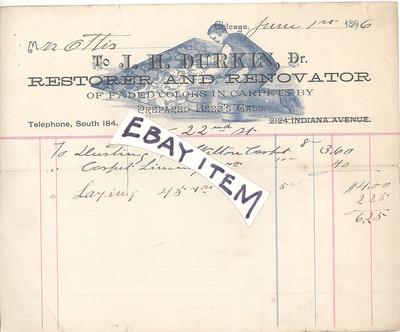 Chicago, June 1st 1896
Mrs Ottis
To J. H. DURKEE, Dr.
RESTORER AND RENOVATOR
OF FADED COLORS IN CARPETS BY
PREPARED BEEF'S GALL
Telephone, South 184.
22nd St
2124 INDIANA AVENUE.
EBAY ITEM
To Dusting Wilton Carpet 8c 3.60
" Carpet Lining " 40
$4.00
" Laying 45 yds 5c 2 25
6 25